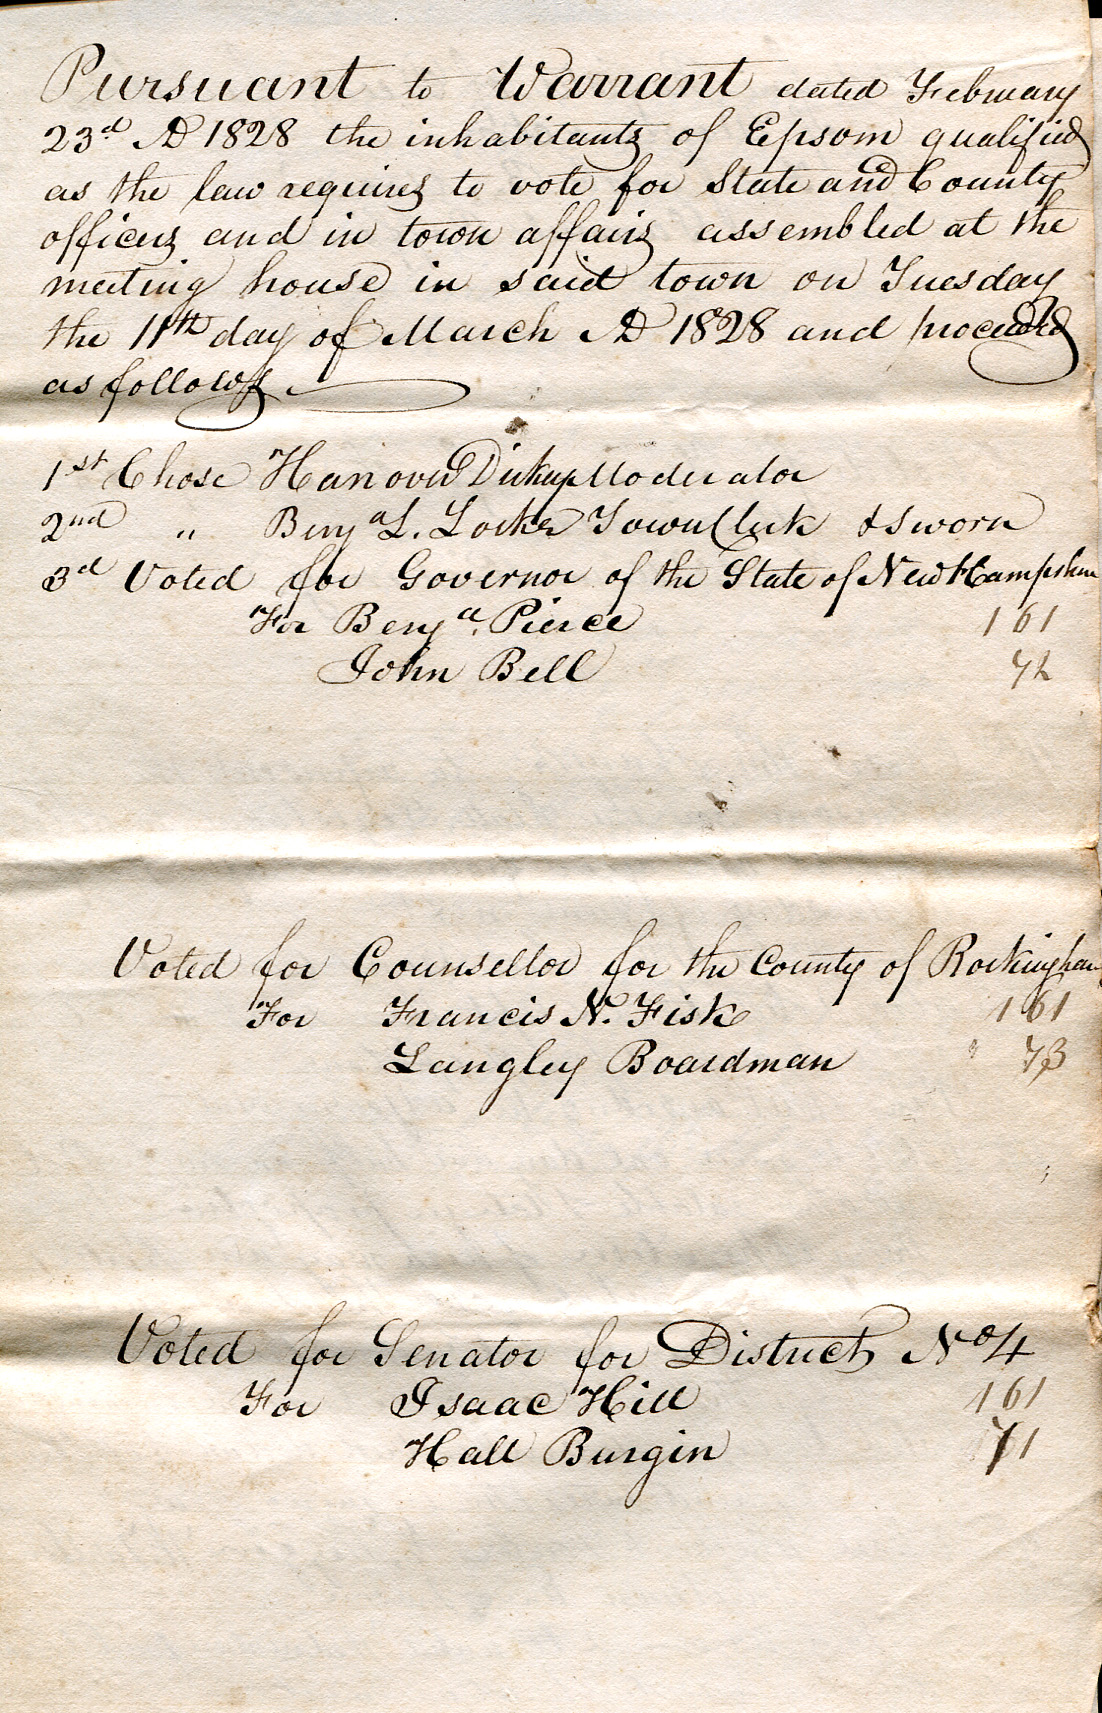 Pursuant to Warrant dated February
23d AD 1828 the inhabitants of Epsom qualified
as the law requires to vote for State and County
officers and in town affairs assembled at the
meeting house in said town on Tuesday
the 11th day of March AD 1828 and proceeded
as follows
1st Chose Hanover Dickey Moderator
2nd " Benja L. Locke Town Clerk & sworn
3d Voted for Governor of the State of New Hampshire
For Benja. Pierce 161
John Bell 72
Voted for Counsellor for the County of Rockingham
For Francis N. Fisk 161
Langley Boardman 73
Voted for Senator for District No 4
For Isaac Hill 161
Hall Burgin 71